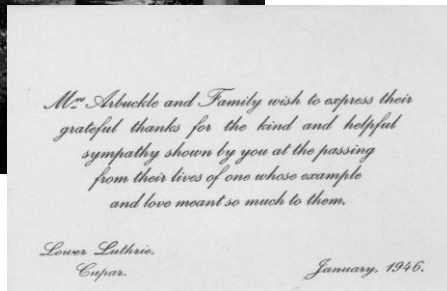 Mrs Arbuckle and Family wish to express their
grateful thanks for the kind and helpful
sympathy shown by you at the passing
from their lives of one whose example
and love meant so much to them.
Lower Luthrie,
Cupar.
January, 1946.